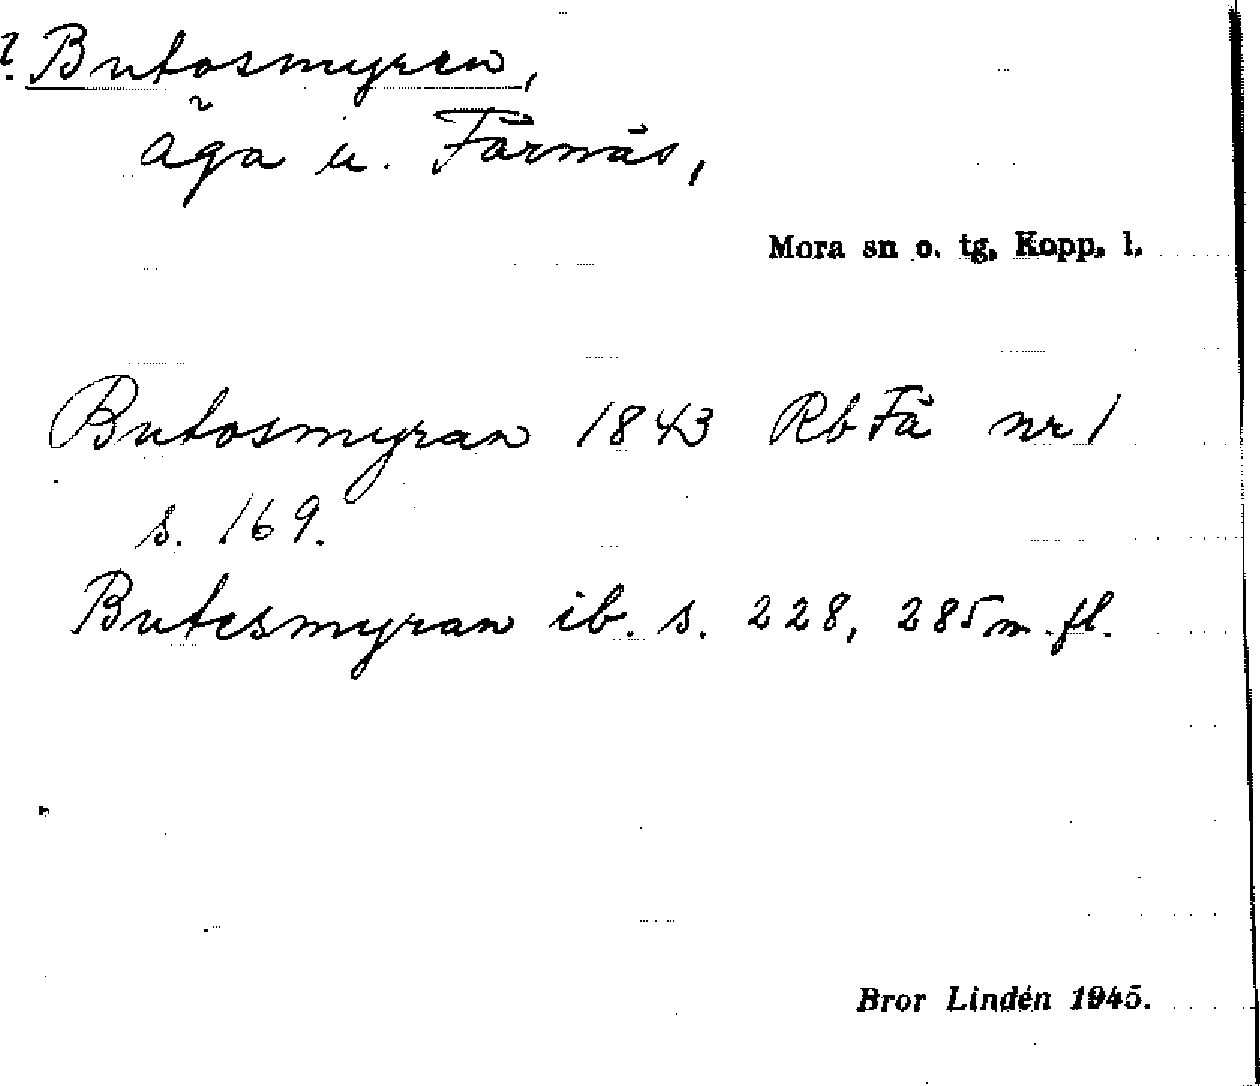 ? Butosmyren,
äga u. Färnäs,
Mora sn o. tg, Kopp. l.
Butosmyran 1843 Rb Fä nr 1
s. 169.
Butesmyran ib. s. 228, 285 m. fl.
Bror Lindén 1945.